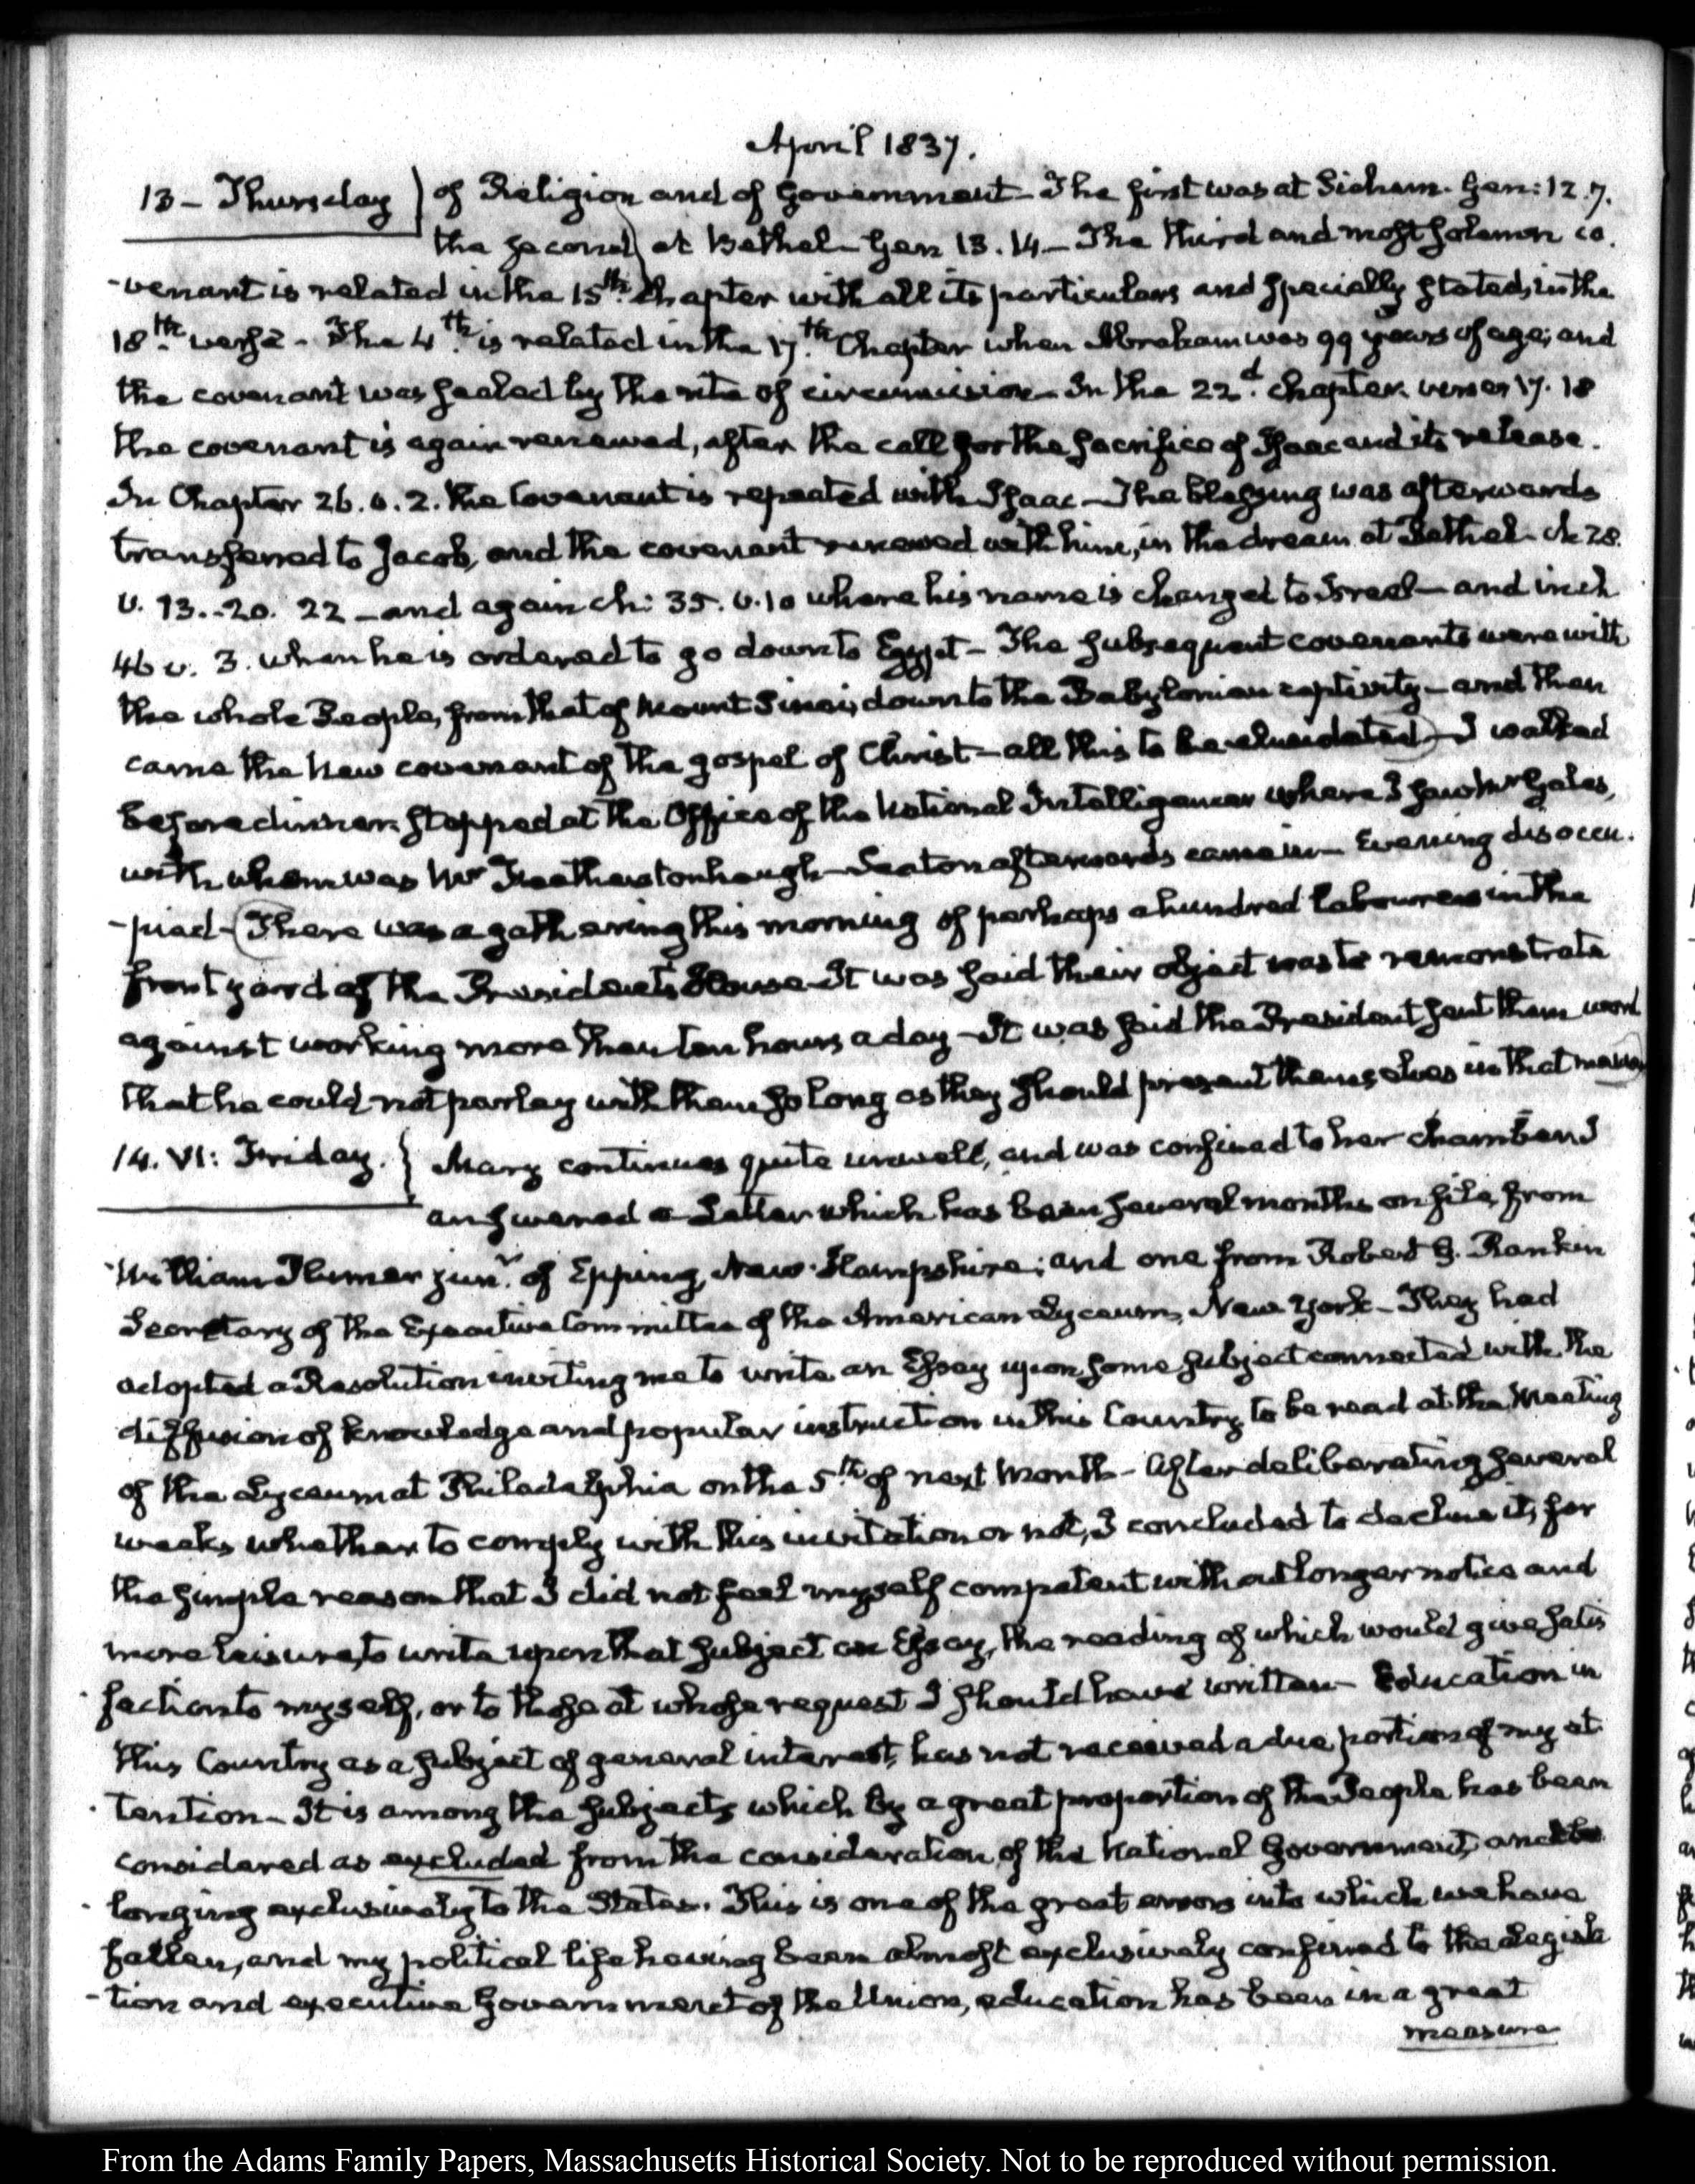 April 1837.
13 – Thursday } of Religion and of Government – The first was at Sichem. Gen: 12.7.
the second at Bethel – Gen 13.14 – The third and most solemn co.
-venant is related in the 15th. Chapter with all its particulars and specially stated, in the
18th. verse. – The 4th. is related in the 17.th Chapter when Abraham was 99 years of age; and
the covenant was sealed by the rite of circumcision – In the 22d. chapter. verses 17. 18
the covenant is again renewed, after the call for the sacrifice of Isaac and its release.
In Chapter 26. v. 2. the Covenant is repeated with Isaac – The blessing was afterwards
transferred to Jacob, and the covenant renewed with him, in the dream at Bethel – ch 28.
v. 13.-20. 22 – and again ch: 35. v. 10 where his name is changed to Israel – and in ch
46 v. 3. when he is ordered to go down to Egypt – The subsequent covenants were with
the whole People, from that of Mount Sinai, down to the Babylonian captivity – and then
came the New covenant of the gospel of Christ – all this to be elucidated) – I walked
before dinner. stopped at the Office of the National Intelligencer where I saw Mr Gales,
with whom was Mr Featherstonhaugh – Seaton afterwards came in – Evening disoccu.
-pied – (There was a gathering this morning of perhaps a hundred labourers in the
front yard of the President's House – It was said their object was to remonstrate
against working more than ten hours a day – It was said the President sent them word
that he could not parley with them so long as they should present themselves in that manner)
14. VI: Friday. } Mary continues quite unwell, and was confined to her chamber. I
answered a Letter which has been several months on file, from
William Plumer junr. of Epping, New-Hampshire; and one from Robert G. Rankin
Secretary of the Executive Committee of the American Lyceum, New York – They had
adopted a Resolution inviting me to write an Essay upon some subject connected with the
diffusion of knowledge and popular instruction in this Country, to be read at the Meeting
of the Lyceum at Philadelphia on the 5th. of next Month – After deliberating several
weeks whether to comply with this invitation or not, I concluded to decline it, for
the simple reason that I did not feel myself competent without longer notice and
more leisure, to write upon that subject an Essay, the reading of which would give satis
-faction to myself, or to those at whose request I should have written – Education in
this Country as a subject of general interest, has not received a due portion of my at
-tention – It is among the subjects which by a great proportion of the People has been
considered as excluded from the consideration of the National Government, and be
-longing exclusively to the States. This is one of the great errors into which we have
fallen, and my political life having been almost exclusively confined to the Legisla
-tion and executive Government of the Union, education has been in a great
measure
From the Adams Family Papers, Massachusetts Historical Society. Not to be reproduced without permission.